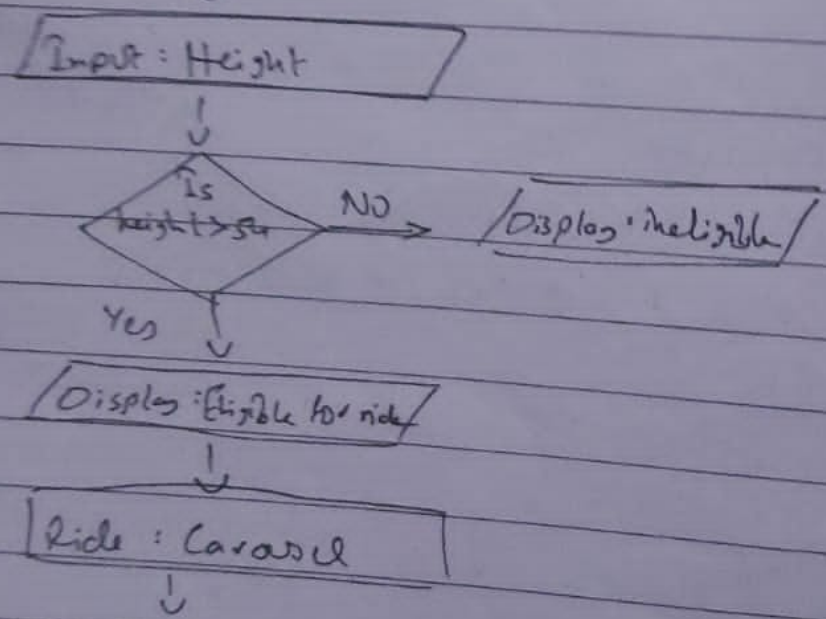 Input : Height
Is
height >
NO
Display : ineligible
Yes
Display : Eligible for ride
Ride : Carasel